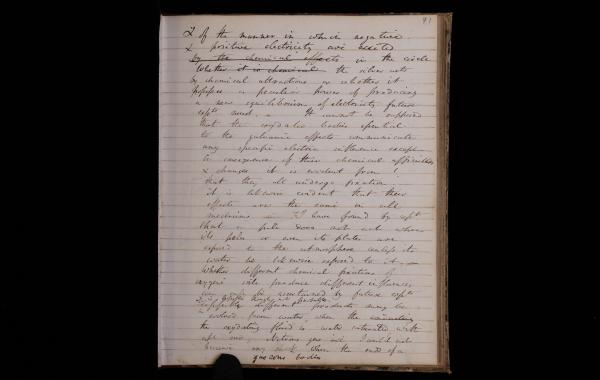 91
of the manner in which negative
& positive electricity are excited
by the chemical effects in the circle
Whether it is chemical the silver acts
by chemical attractions or whether it
possesses a peculiar power of producing
a new equilibrium of electricity future
expts must. It cannot be supposed
that the oxydable bodies essential
to the galvanic effects communicate
any specific electric influence except
in consequence of their chemical affinities
& changes it is evident from
that they all undergo
it is likewise evident that their
effects are the same in all
I have found by expt
that a pile does not act when
its poles or even its plates are
exposed to the atmosphere unless its
water be likewise exposed to it
Whether different chemical
oxygene will produce different influences
can only be ascertained by future expts
different products may be
evolved from water, when the
the oxydating fluid is water saturated with
I could not
perceive any when the ends of a
gaseous bodies